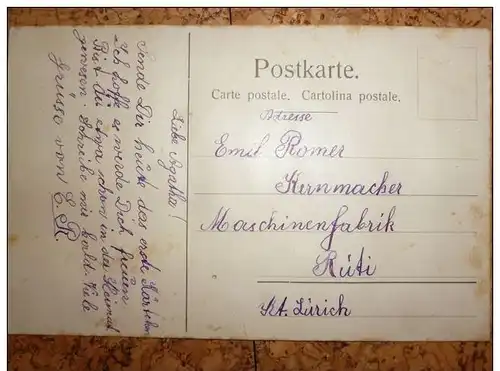 Liebe Agatha!
Sende Dir heute das erste Kärtchen
Ich hoffe es werde Dich freuen
Bist du etwa schon in der Heimat
gewesen. Schreibe mir bald. Viele
Grüsse von E. R.
Postkarte.
Carte postale. Cartolina postale.
Adresse
Emil Romer
Kernmacher
Maschinenfabrik
Rüti
Kt. Zürich